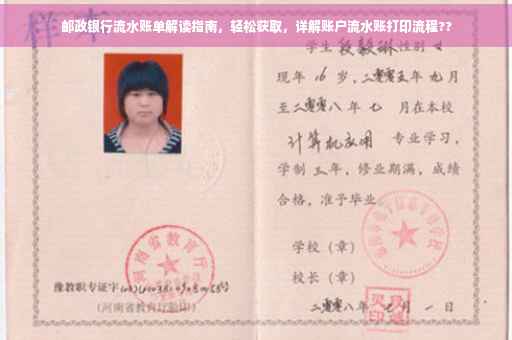 邮政银行流水账单解读指南，轻松获取，详解账户流水账打印流程??
样本
学生段毅琳性别女
现年16岁，二零零五年九月
至二零零八年七月在本校
计算机应用专业学习，
学制三年，修业期满，成绩
合格，准予毕业
学校（章）
校长（章）
二零零八年七月一日
河南省教育厅
豫教职专证字
（河南省教育厅验印）